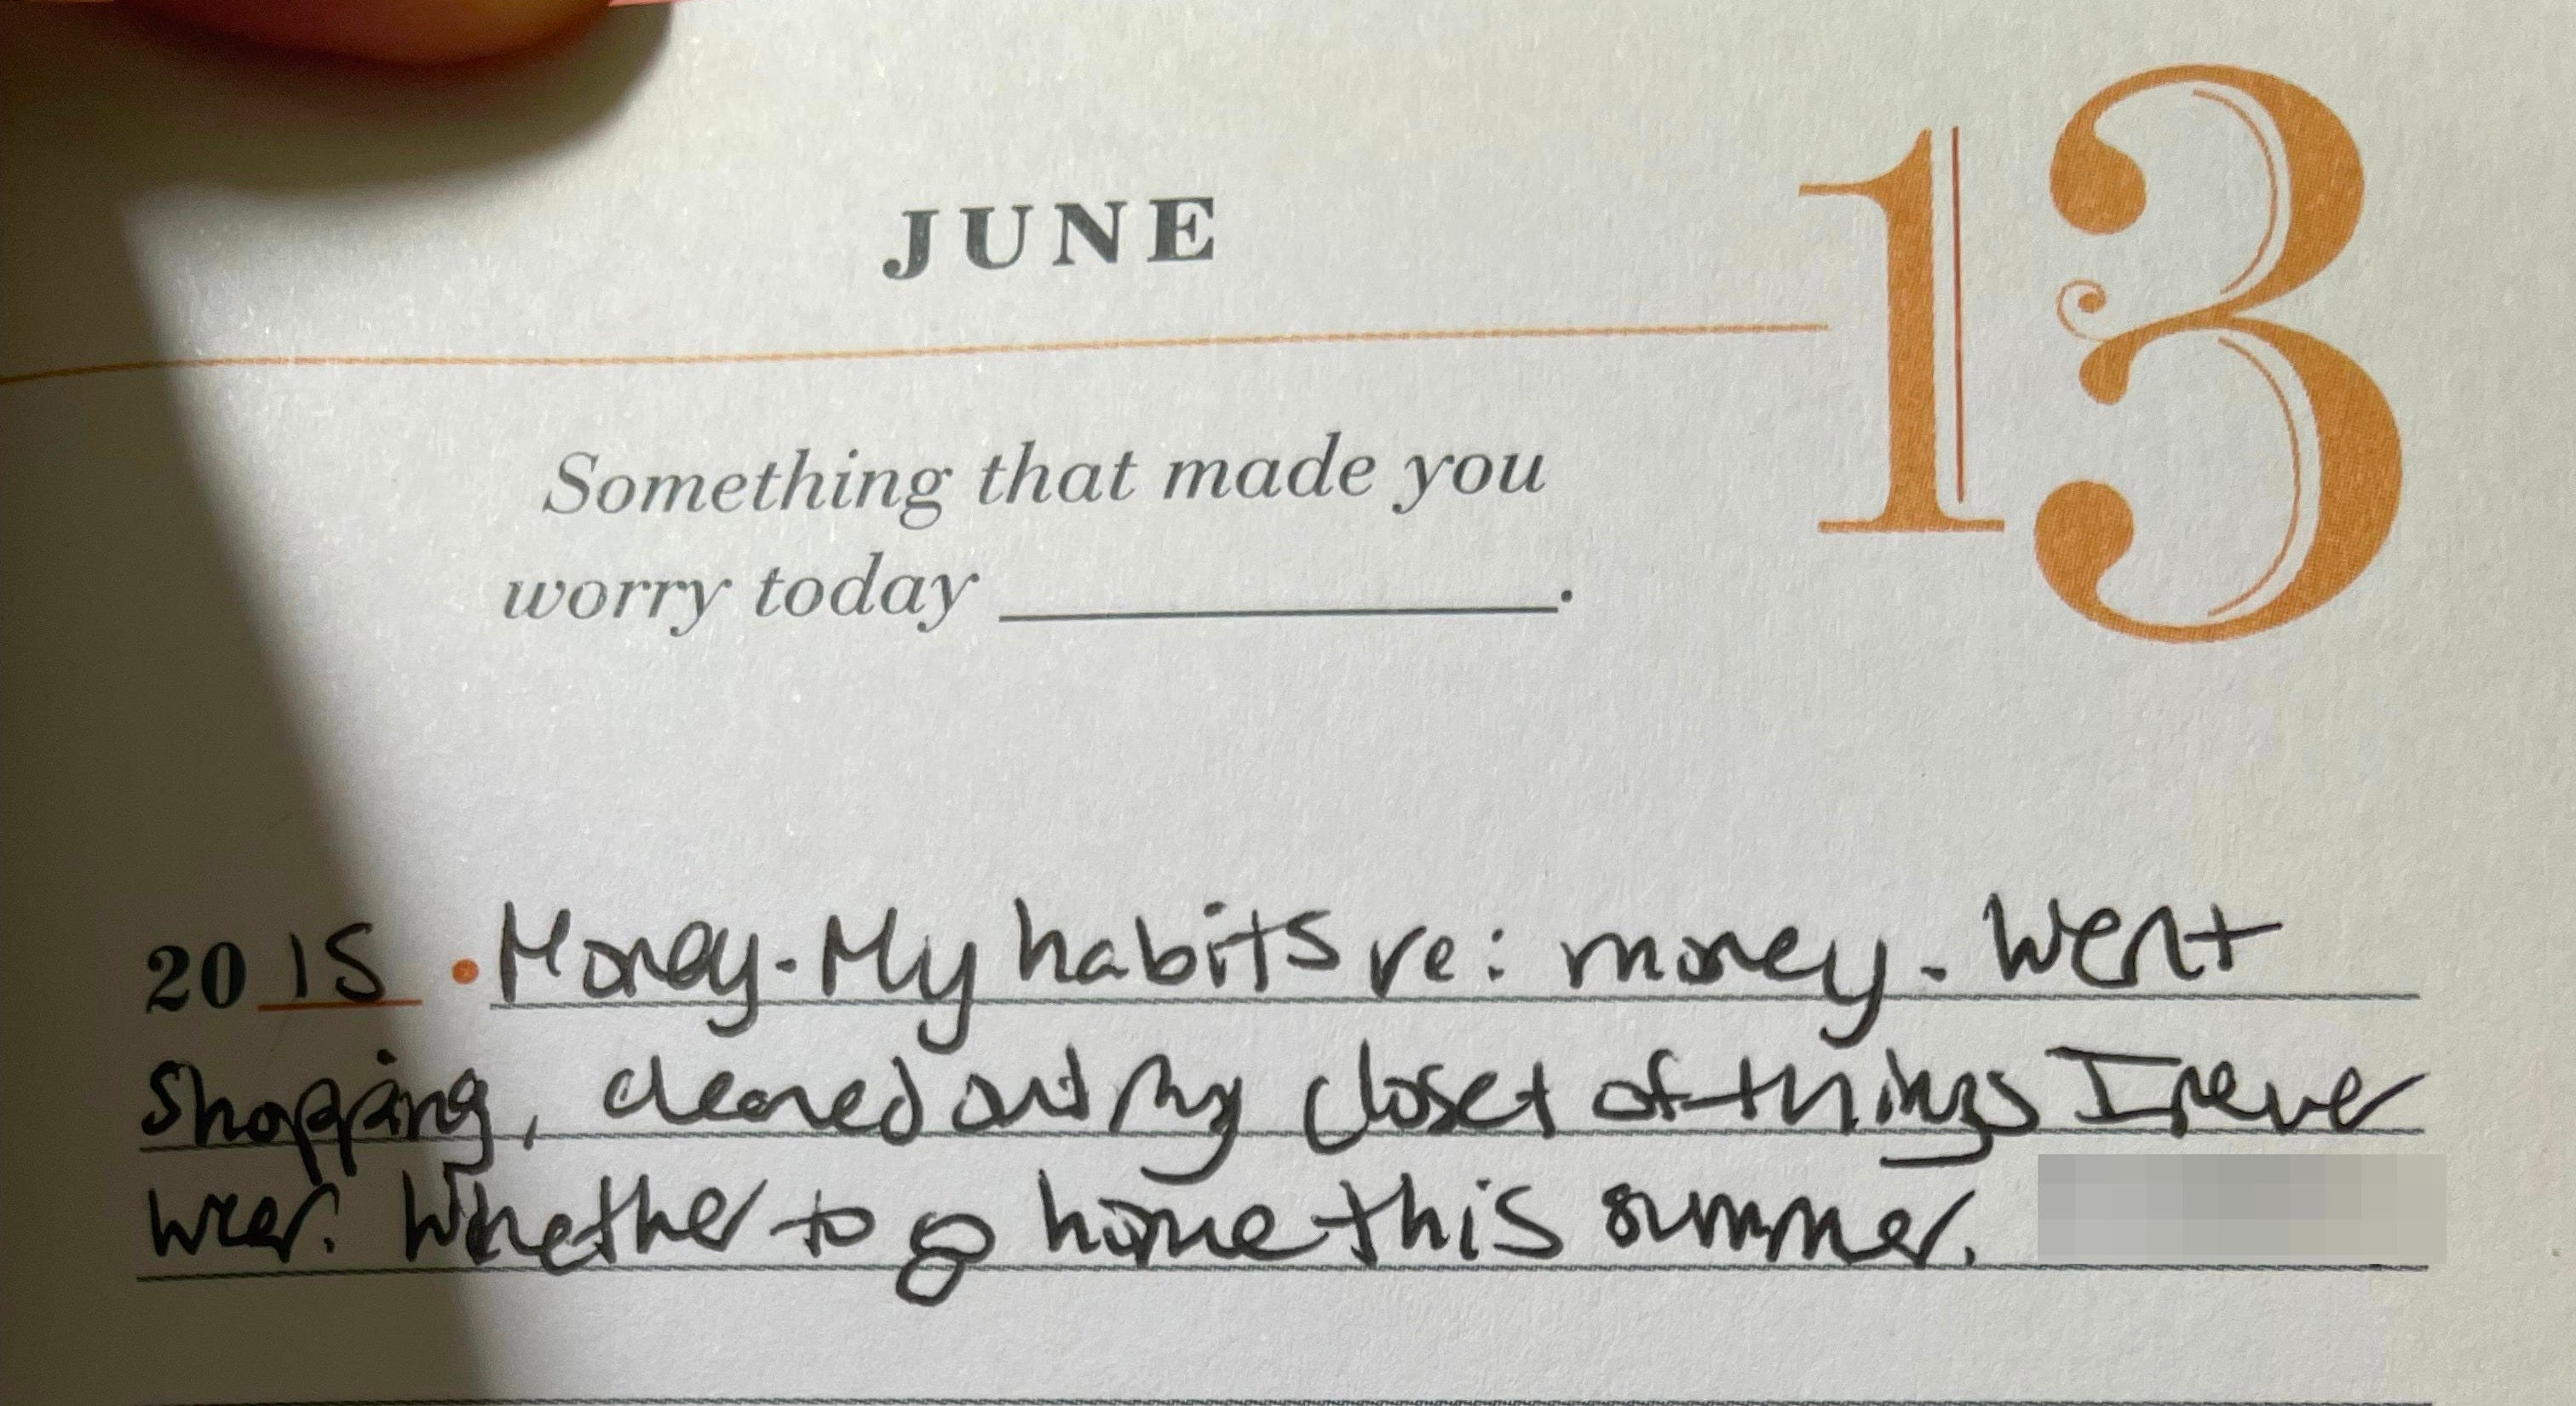 JUNE
13
Something that made you
worry today ____________.
2015 • Money. My habits re: money. Went
shopping, cleaned out my closet of things I never
wear. Whether to go home this summer.